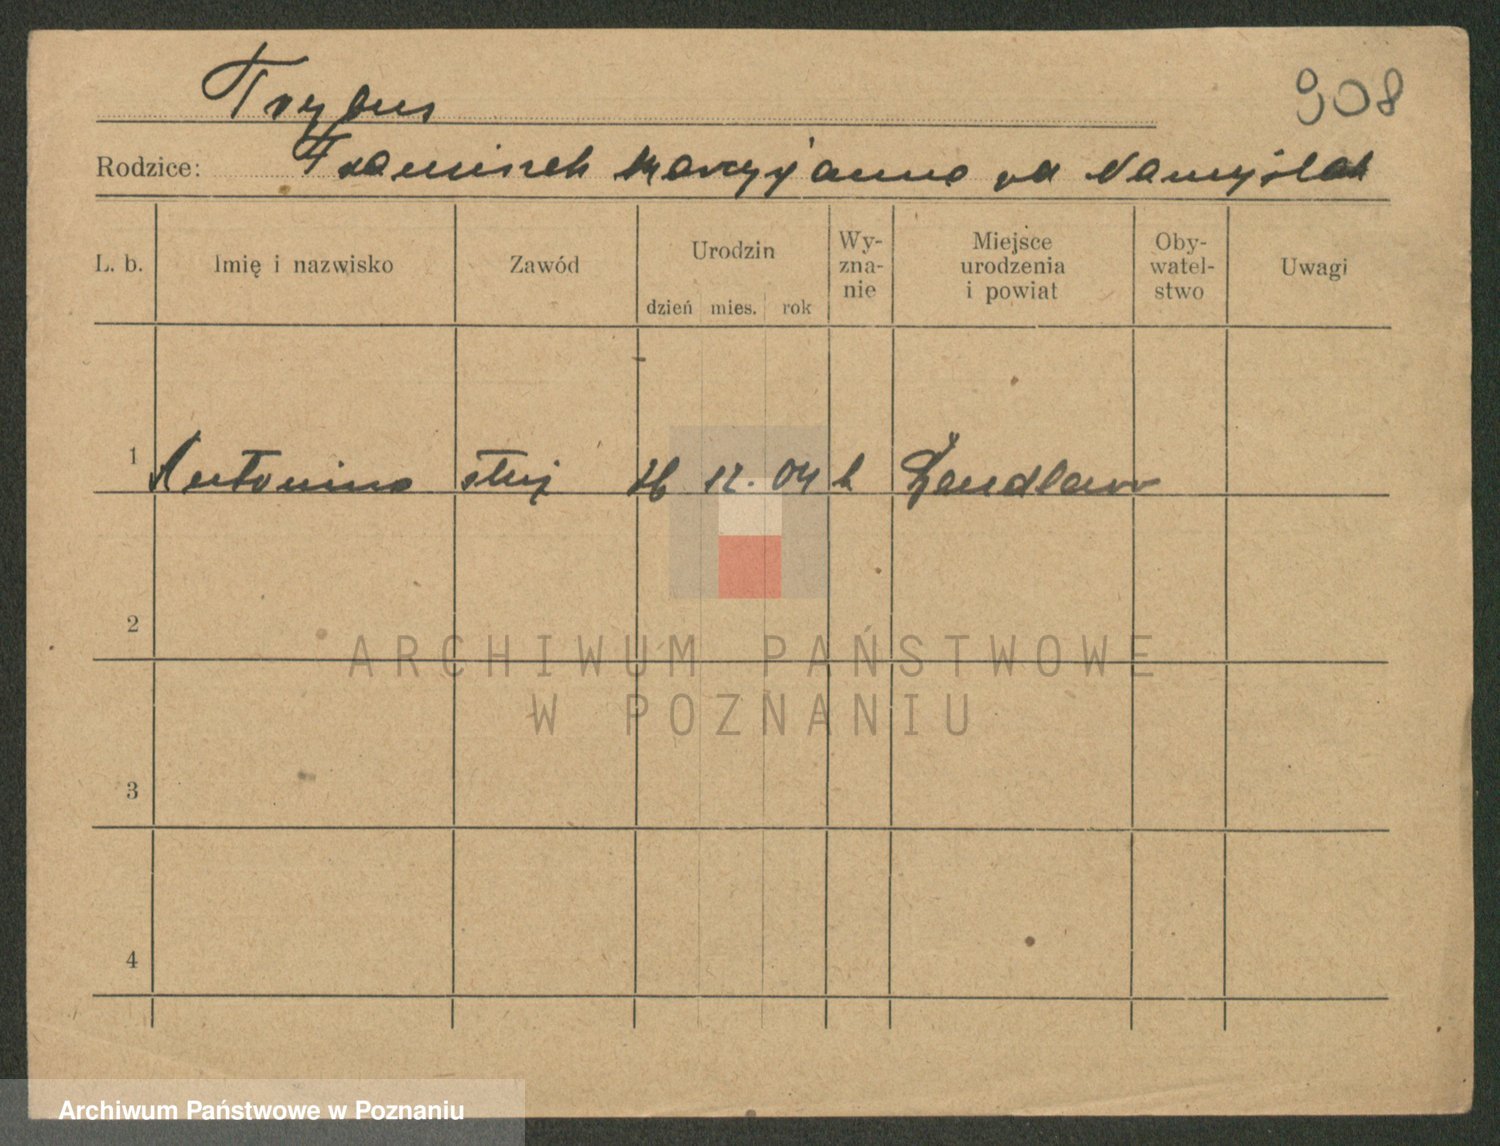 Trybus
908
Rodzice: Franciszek Maryjanna od Namyślak
L. b.
Imię i nazwisko
Zawód
Urodzin
dzień mies. rok
Wy-
zna-
nie
Miejsce
urodzenia
i powiat
Oby-
watel-
stwo
Uwagi
1 Antonina służ 12. 04 k
2
3
4
ARCHIWUM PAŃSTWOWE
W POZNANIU
Archiwum Państwowe w Poznaniu